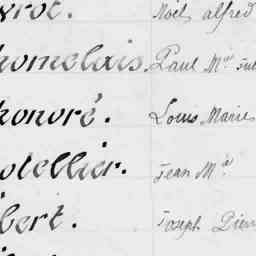 yrot. Noël alfred
homelais. Paul Mie Jul
honoré. Louis Marie
otellier. Jean Mie
bert. Joseph Pierr